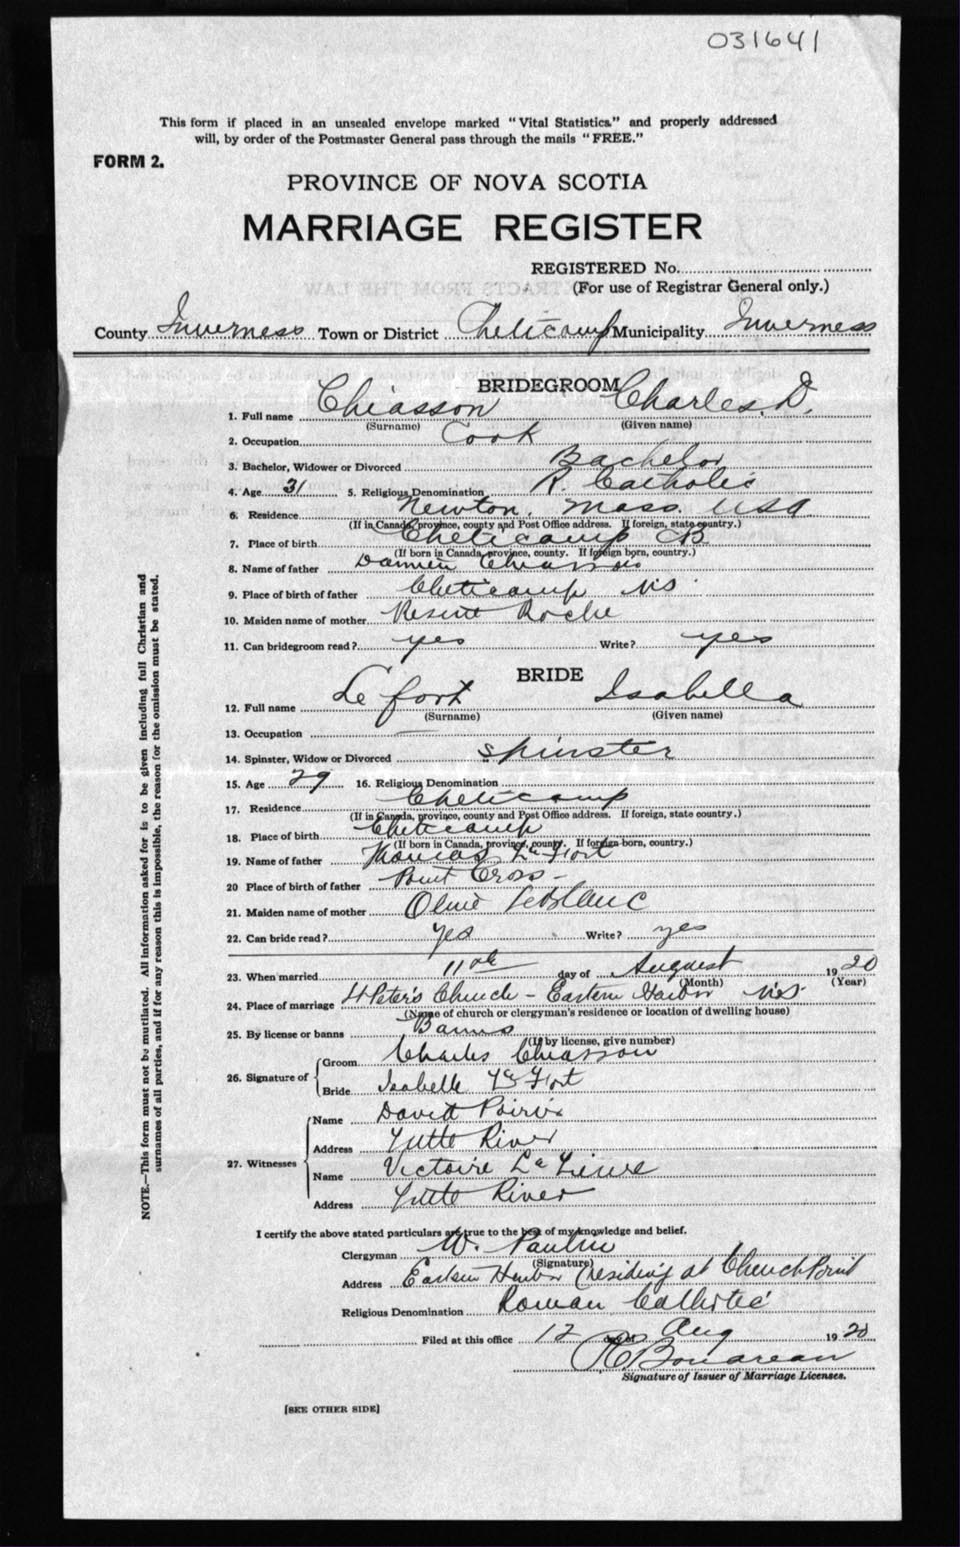 031641
This form if placed in an unsealed envelope marked "Vital Statistics" and properly addressed
will, by order of the Postmaster General pass through the mails "FREE."
FORM 2.
PROVINCE OF NOVA SCOTIA
MARRIAGE REGISTER
REGISTERED No.
(For use of Registrar General only.)
County Inverness Town or District Cheticamp Municipality Inverness
BRIDEGROOM
1. Full name Chiasson Charles. D.
(Surname) (Given name)
2. Occupation Cook
3. Bachelor, Widower or Divorced Bachelor
4. Age 31 5. Religious Denomination R Catholic
6. Residence Newton, Mass. USA
(If in Canada, province, county and Post Office address. If foreign, state country.)
7. Place of birth Cheticamp CB
(If born in Canada, province, county. If foreign born, country.)
8. Name of father Damien Chiasson
9. Place of birth of father Cheticamp NS
10. Maiden name of mother Roche
11. Can bridegroom read? yes Write? yes
BRIDE
12. Full name Le fort Isabella
(Surname) (Given name)
13. Occupation —
14. Spinster, Widow or Divorced spinster
15. Age 29 16. Religious Denomination
17. Residence Cheticamp
(If in Canada, province, county and Post Office address. If foreign, state country.)
18. Place of birth Cheticamp
(If born in Canada, province, county. If foreign-born, country.)
19. Name of father Thomas Le Fort
20 Place of birth of father Point Cross -
21. Maiden name of mother Olive LeBlanc
22. Can bride read? yes Write? yes
23. When married 11th day of August 1920
(Month) (Year)
24. Place of marriage St Peter's Church - Eastern Harbor N.S.
(Name of church or clergyman's residence or location of dwelling house)
25. By license or banns Banns
(If by license, give number)
26. Signature of Groom Charles Chiasson
Bride Isabelle Le Fort
27. Witnesses Name David Poirier
Address River
Name Victoire
Address River
I certify the above stated particulars are true to the best of my knowledge and belief.
Clergyman W.
(Signature)
Address Eastern Harbor (residing at Church Point
Religious Denomination Roman Catholic
Filed at this office 12 day of Aug 1920
Signature of Issuer of Marriage Licenses.
[SEE OTHER SIDE]
NOTE.—This form must not be mutilated. All information asked for is to be given including full Christian and
surnames of all parties, and if for any reason this is impossible, the reason for the omission must be stated.